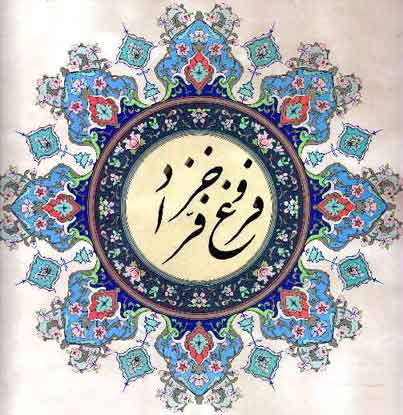 فروغ فرخزاد